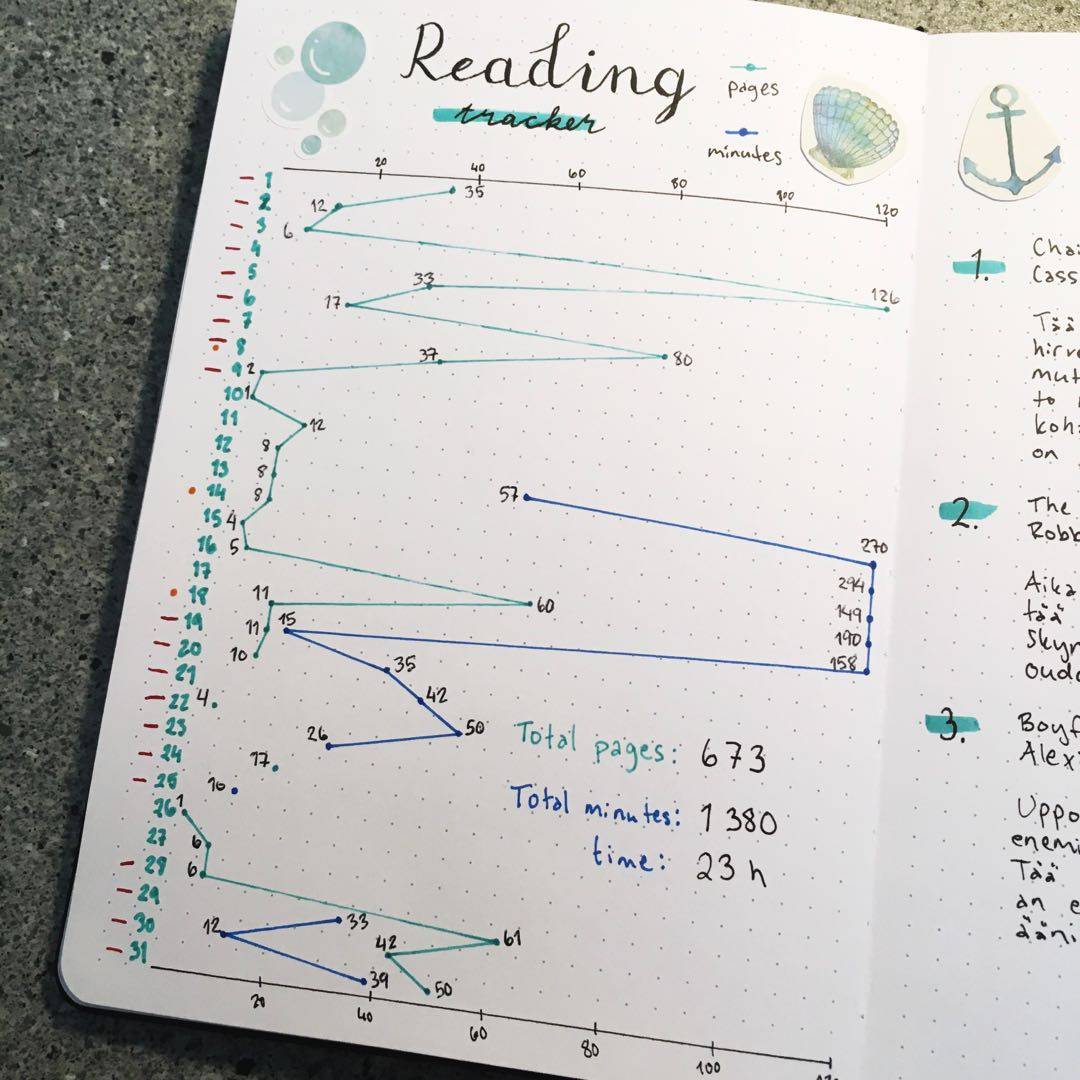 Reading
tracker
pages
minutes
20 40 60 80 100 120
1 35
2 12
3 6
4
5 33 126
6 17
7
8 37 80
9 2
10 1
11 12
12 8
13 8
14 8 57
15 4
16 5 270
17 294
18 11 60 149
19 11 15 190
20 10 158
21 35
22 4 42
23 26 50
24 17
25 10
26 1
27 6
28 6
29 33
30 12 42 61
31 39 50
Total pages: 673
Total minutes: 1 380
time: 23 h
20 40 60 80 100
1. Chai
Cass
Tää
hirv
mut
to
koh
on
2. The
Robb
Aika
tää
Skyr
oudo
3. Boyf
Alex
Uppo
enemi
Tää
an e
ääni